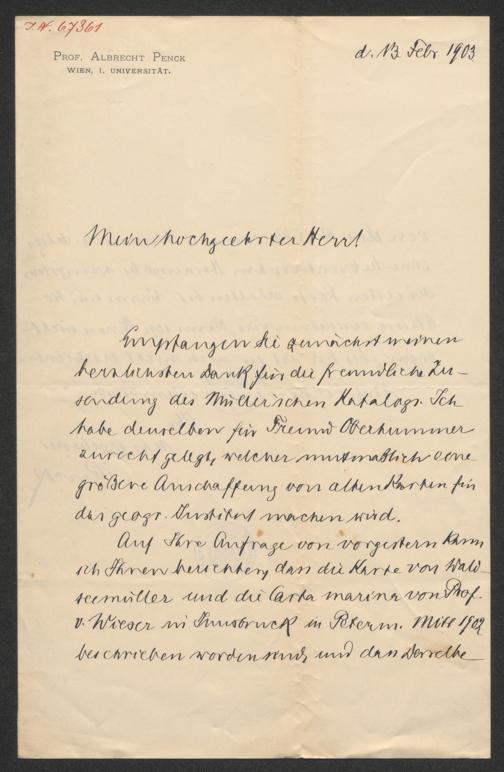 I.N. 67361
PROF. ALBRECHT PENCK
WIEN, I. UNIVERSITÄT.
d. 13 Febr 1903
Mein hochgeehrter Herr!
Empfangen Sie zunächst meinen
herzlichsten Dank für die freundliche Zu-
sendung des Müller'schen Katalogs. Ich
habe denselben für Freund Oberhummer
zurecht gelegt, welcher mutmaßlich eine
größere Anschaffung von alten Karten für
das geogr. Institut machen wird.
Auf Ihre Anfrage von vorgestern kann
ich Ihnen berichten, dass die Karte von Wald
seemüller und die Carta marina von Prof.
v. Wieser in Innsbruck in Peterm. Mitt 1902
beschrieben worden sind, und dass derselbe